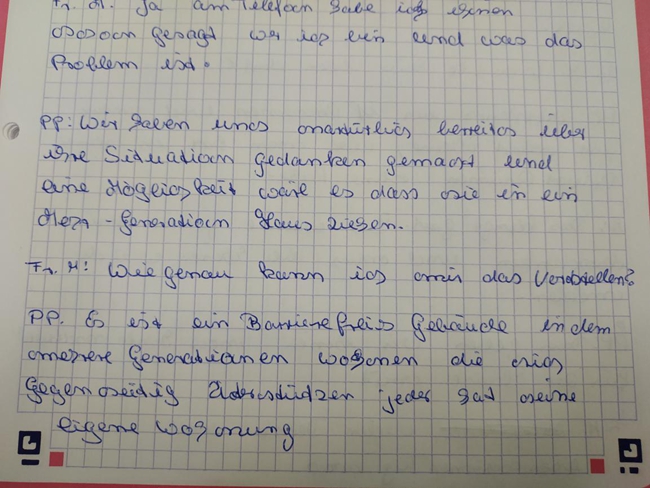 Fr. H. Ja am Telefon habe ich ihnen
schon gesagt wer ich bin und was das
Problem ist.
PP: Wir haben uns natürlich bereits über
ihre Situation gedanken gemacht und
eine Möglichkeit wäre es dass sie in ein
Mehr-Generation Haus ziehen.
Fr. H: Wie genau kann ich mir das Vorstellen?
PP. Es ist ein Barrierefreis Gebäude indem
mehrere Generationen wohnen die sich
Gegenseidig Unterstüdzen jeder hat seine
eigene wohnung